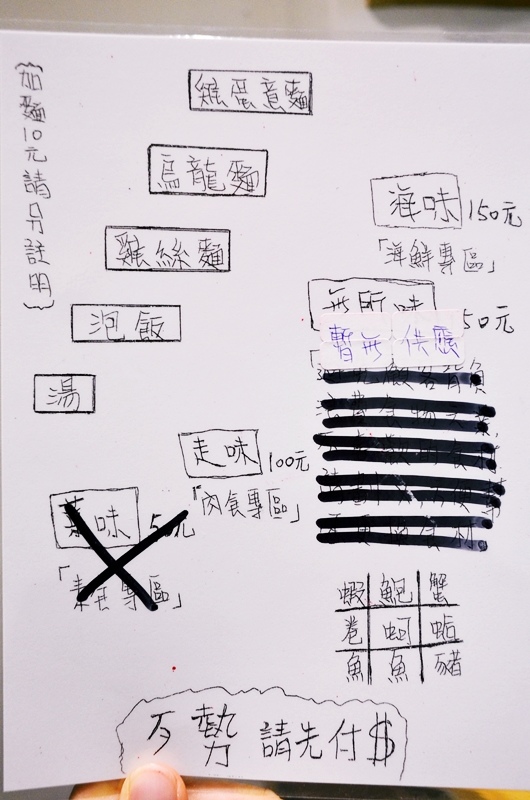 {加麵10元請分註明}
雞蛋意麵
烏龍麵
雞絲麵
泡飯
湯
海味 150元
「海鮮專區」
無所味 50元
暫無 供應
走味 100元
「肉食專區」
菜味 50元
「素食專區」
蝦 鮑 蟹
卷 蚵 蛤
魚 魚 豬
歹勢 請先付$